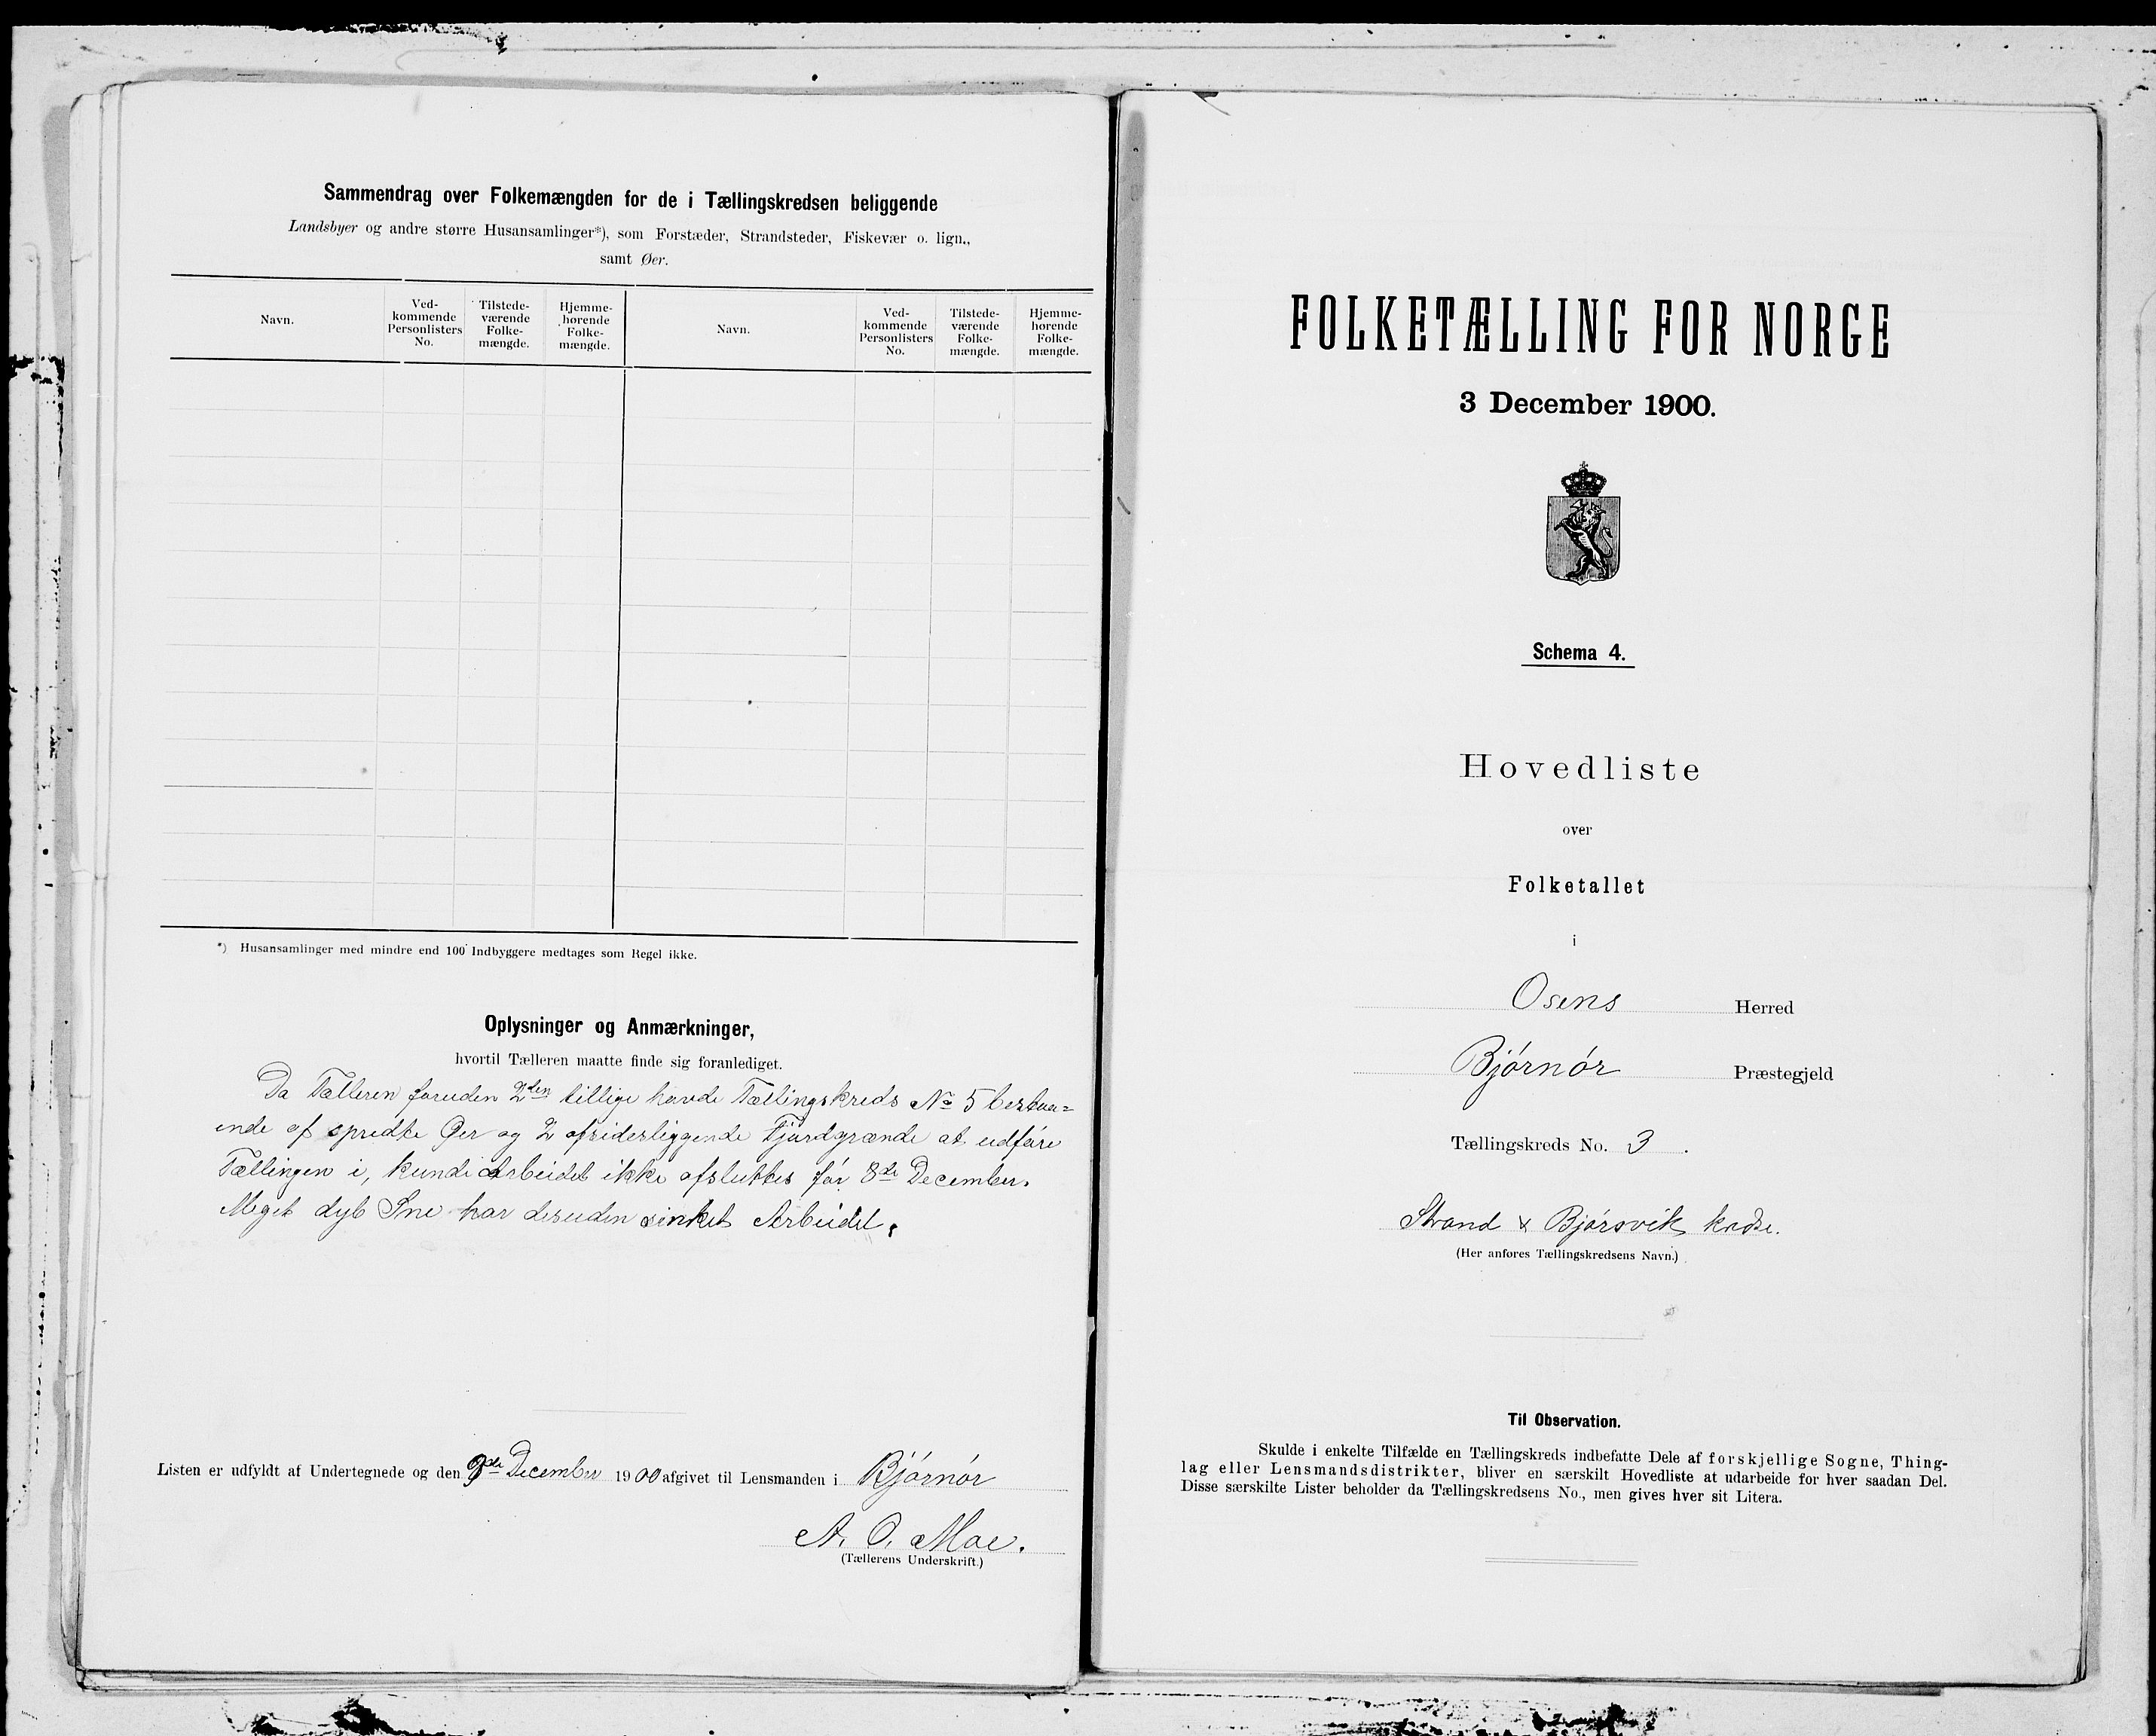 Sammendrag over Folkemængden for de i Tællingskredsen beliggende
Landsbyer og andre større Husansamlinger*), som Forstæder, Strandsteder, Fiskevær o. lign.,
samt Øer.
Navn.
Ved-
kommende
Personlisters
No.
Tilstede-
værende
Folke-
mængde.
Hjemme-
hørende
Folke-
mængde.
Navn.
Ved-
kommende
Personlisters
No.
Tilstede-
værende
Folke-
mængde.
Hjemme-
hørende
Folke-
mængde.
*) Husansamlinger med mindre end 100 Indbyggere medtages som Regel ikke.
Oplysninger og Anmærkninger,
hvortil Tælleren maatte finde sig foranlediget.
Da Tælleren foruden 2den tillige havde Tællingskreds No 5 bestaa=
ende af spredte Øer og 2 afsidesliggende Fjordgrænde at udføre
Tællingen i, kunde Arbeidet ikke afsluttes før 8de December.
Meget dyb Sne har desuden sinket Arbeidet.
Listen er udfyldt af Undertegnede og den 9de December 1900 afgivet til Lensmanden i Bjørnør
A. O. Moe.
(Tællerens Underskrift.)
FOLKETÆLLING FOR NORGE
3 December 1900.
Schema 4.
Hovedliste
over
Folketallet
i
Osens Herred
Bjørnør Præstegjeld
Tællingskreds No. 3.
Strand & Bjørsvik kredse.
(Her anføres Tællingskredsens Navn.)
Til Observation.
Skulde i enkelte Tilfælde en Tællingskreds indbefatte Dele af forskjellige Sogne, Thing-
lag eller Lensmandsdistrikter, bliver en særskilt Hovedliste at udarbeide for hver saadan Del.
Disse særskilte Lister beholder da Tællingskredsens No., men gives hver sit Litera.